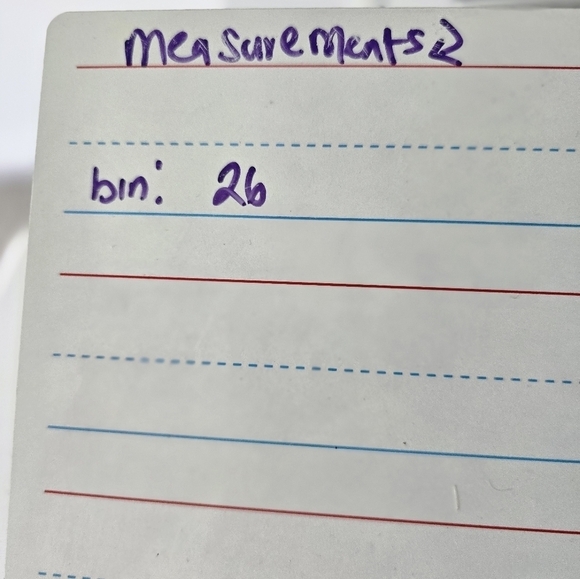 measurements2
bin: 26